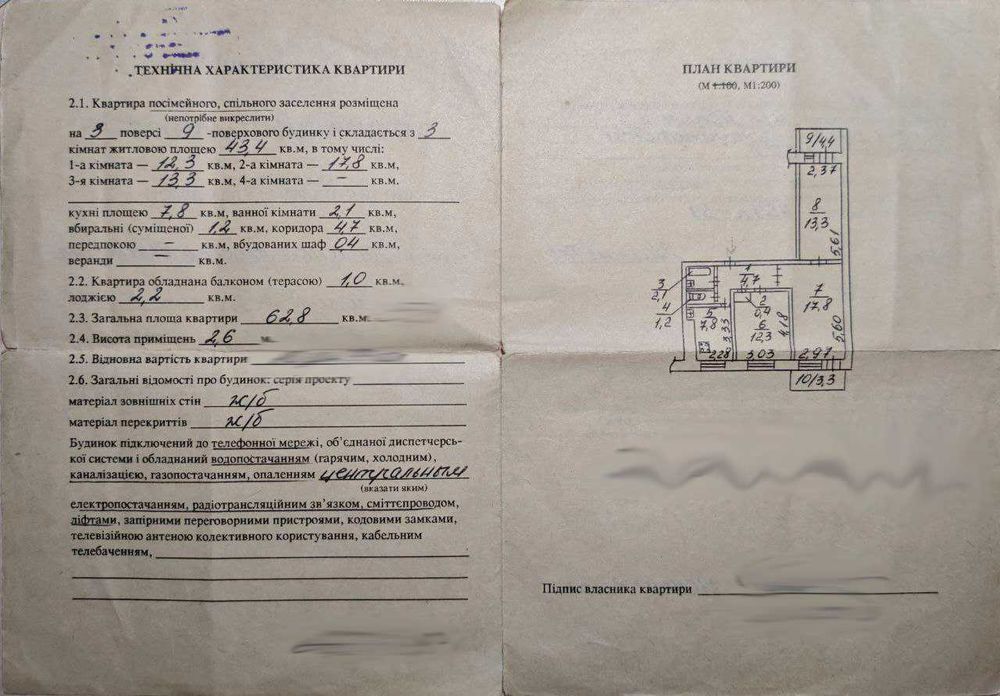 ТЕХНІЧНА ХАРАКТЕРИСТИКА КВАРТИРИ
2.1. Квартира посімейного, спільного заселення розміщена
(непотрібне викреслити)
на 3 поверсі 9 -поверхового будинку і складається з 3
кімнат житловою площею 43,4 кв.м, в тому числі:
1-а кімната — 12,3 кв.м, 2-а кімната — 17,8 кв.м,
3-я кімната — 13,3 кв.м, 4-а кімната — — кв.м.
кухні площею 7,8 кв.м, ванної кімнати 2,1 кв.м,
вбиральні (суміщеної) 1,2 кв.м, коридора 4,7 кв.м,
передпокою — кв.м, вбудованих шаф 0,4 кв.м,
веранди — кв.м.
2.2. Квартира обладнана балконом (терасою) 1,0 кв.м,
лоджією 2,2 кв.м.
2.3. Загальна площа квартири 62,8 кв.м.
2.4. Висота приміщень 2,6 м.
2.5. Відновна вартість квартири
2.6. Загальні відомості про будинок: серія проекту
матеріал зовнішніх стін ж/б
матеріал перекриттів ж/б
Будинок підключений до телефонної мережі, об’єднаної диспетчерсь-
кої системи і обладнаний водопостачанням (гарячим, холодним),
каналізацією, газопостачанням, опаленням центральным
(вказати яким)
електропостачанням, радіотрансляційним зв’язком, сміттєпроводом,
ліфтами, запірними переговорними пристроями, кодовими замками,
телевізійною антеною колективного користування, кабельним
телебаченням,
ПЛАН КВАРТИРИ
(М 1:100, М1:200)
9/4,4
2,37
8
13,3
5,61
1
4,7
3
2,1
4
1,2
2
0,4
7
17,8
5
7,8
3,33
6
12,3
4,18
5,60
2,28
3,03
2,97
10/3,3
Підпис власника квартири